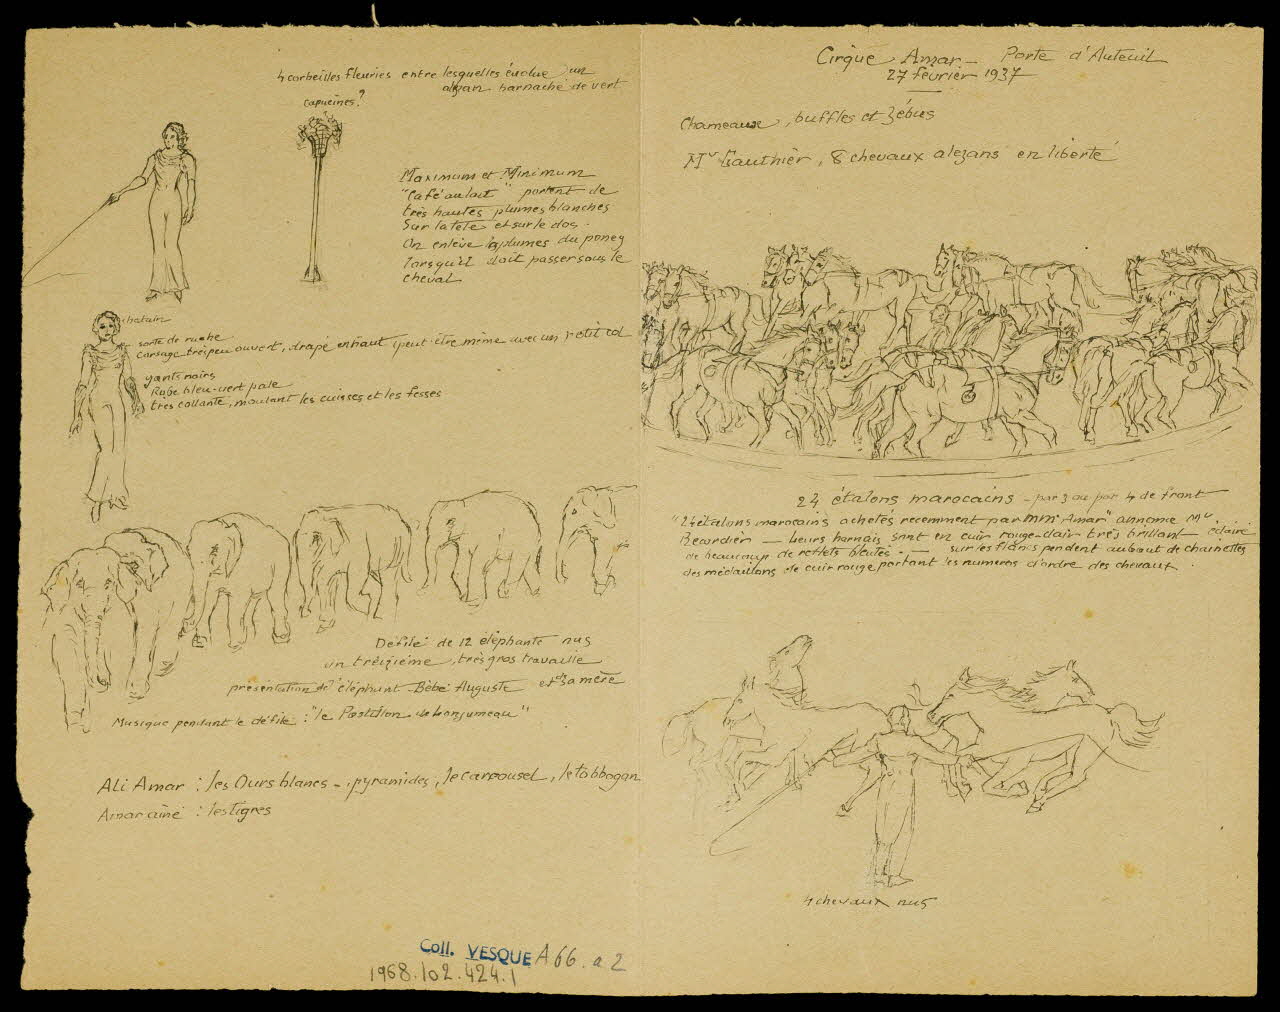 Cirque Amar _ Porte d'Auteuil
27 février 1937
Chameaux, buffles et zébus
Mr Gauthier, 8 chevaux alezans en liberté
24 étalons marocains - par 3 ou par 4 de front
"24 étalons marocains achetés recemment par MMrs Amar" annonce Mr
Becardier — Leurs harnais sont en cuir rouge-clair très brillant éclairé
de beaucoup de reflets bleutés. — sur les flancs pendent au bout de chainettes
des médaillons de cuir rouge portant les numéros d'ordre des chevaux.
4 chevaux nus
4 corbeilles fleuries entre lesquelles évolue un
alezan harnaché de vert
capucines?
Maximum et Minimum
"Café au lait" portent de
très hautes plumes blanches
sur la tête et sur le dos.
On enlève les plumes du poney
lorsqu'il doit passer sous le
cheval
chatain
sorte de ruche
corsage très peu ouvert, drapé en haut (peut-être même avec un petit col
gants noirs
Robe bleu-vert pale
très collante, moulant les cuisses et les fesses
Défilé de 12 éléphants nus
un treizième, très gros travaille
présentation de l'éléphant Bébé Auguste et de sa mère
Musique pendant le défilé : "le Postillon de Lonjumeau"
Ali Amar : les Ours blancs _ pyramides, le carrousel, le tobbogan
Amar ainé : les tigres
Coll. VESQUE A 66. a 2
1968.102.424.1